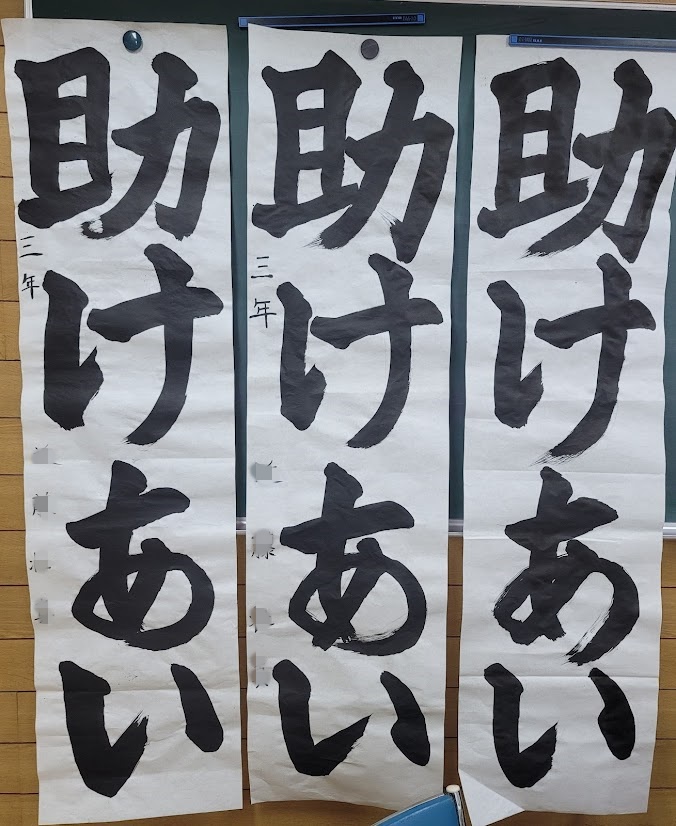 助けあい
三年
助けあい
三年
助けあい